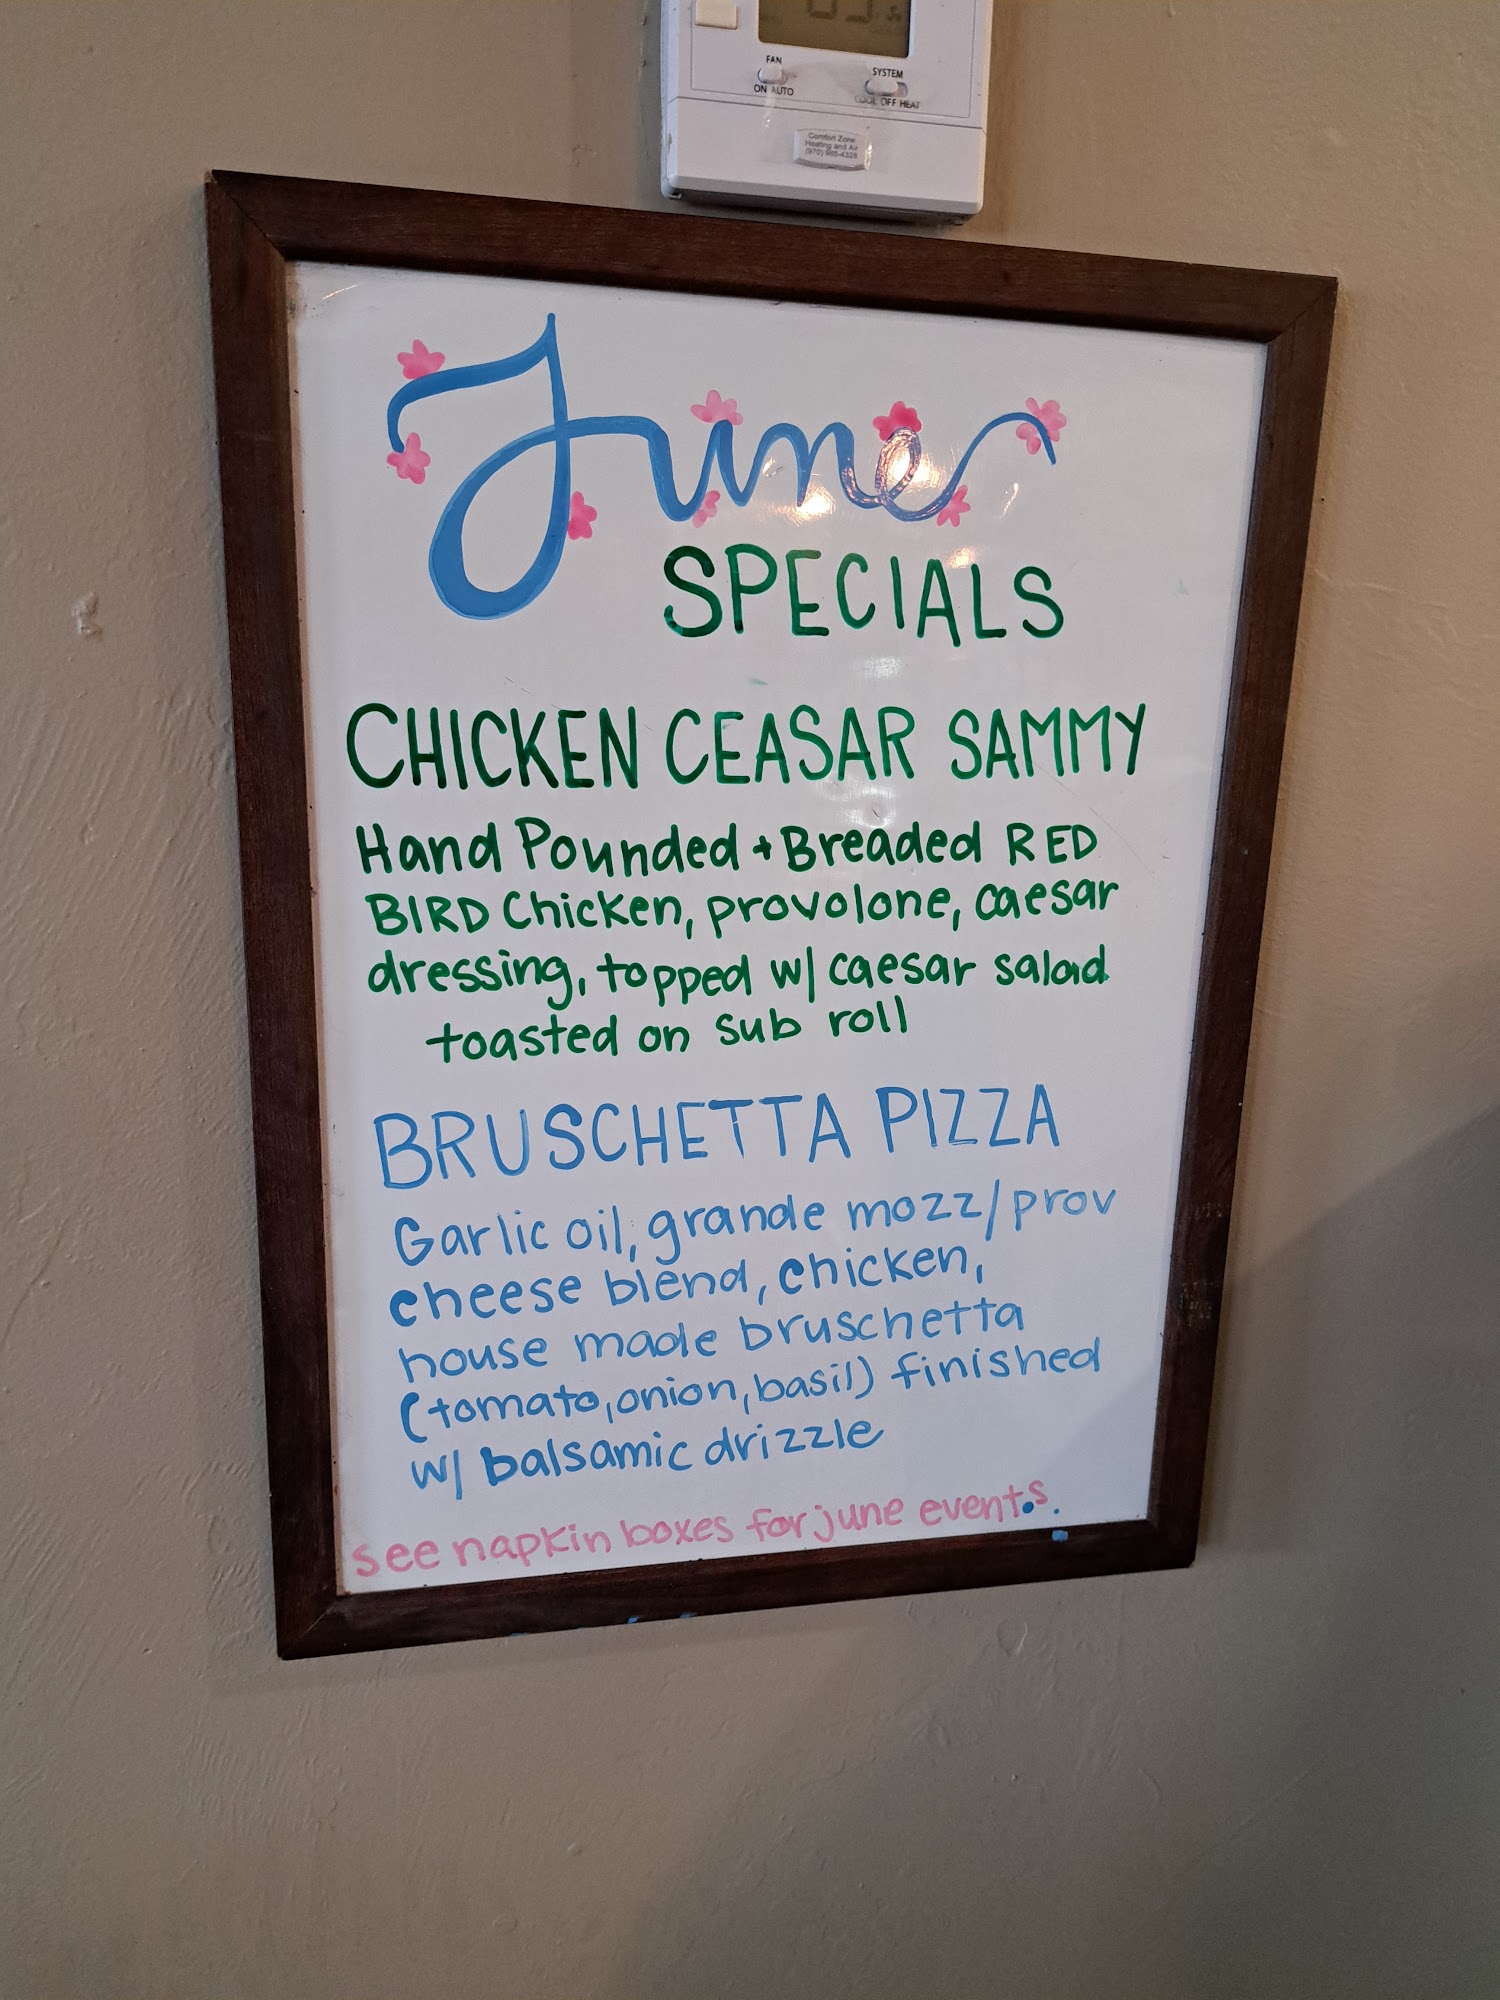 FAN
ON AUTO
SYSTEM
COOL OFF HEAT
Comfort Zone
Heating and Air
(970) 985-4328
June
SPECIALS
CHICKEN CEASAR SAMMY
Hand Pounded + Breaded RED
BIRD Chicken, provolone, caesar
dressing, topped w/ caesar salad
toasted on sub roll
BRUSCHETTA PIZZA
Garlic oil, grande mozz/prov
cheese blend, chicken,
house made bruschetta
(tomato, onion, basil) finished
w/ balsamic drizzle
see napkin boxes for june events.